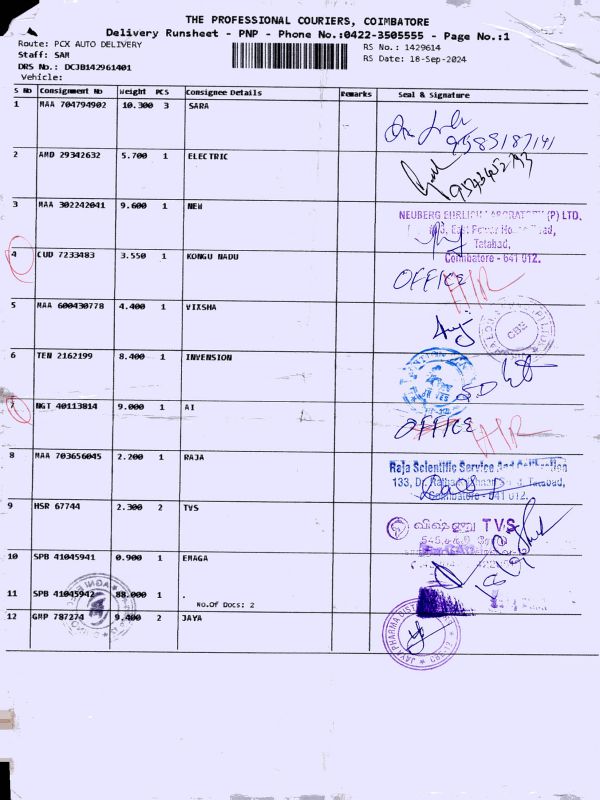 THE PROFESSIONAL COURIERS, COIMBATORE
Delivery Runsheet - PNP - Phone No.:0422-3505555 - Page No.:1
Route: PCX AUTO DELIVERY
RS No.: 1429614
Staff: SAM
RS Date: 18-Sep-2024
DRS No.: DCJB142961401
Vehicle:
S No Consignment No Weight PCS Consignee Details Remarks Seal & Signature
1 MAA 704794902 10.300 3 SARA
2 AMD 29342632 5.700 1 ELECTRIC
3 MAA 302242041 9.600 1 NEW
NEUBERG EHRLICH LABORATORY (P) LTD,
East Power House Road,
Tatabad,
Coimbatore - 641 012.
4 CUD 7233483 3.550 1 KONGU NADU
OFFICE HIR
5 MAA 600430778 4.400 1 VIXSHA
CBE
6 TEN 2162199 8.400 1 INVENSION
7 NGT 40113814 9.000 1 AI
OFFICE HIR
8 MAA 703656045 2.200 1 RAJA
Raja Scientific Service And Calibration
133, Dr. Tatabad,
Coimbatore - 641 012.
9 HSR 67744 2.300 2 TVS
விஷ்ணு TVS
10 SPB 41045941 0.900 1 EMAGA
11 SPB 41045942 88.000 1 .
No.Of Docs: 2
12 GMP 787274 9.400 2 JAYA
JAYA PHARMA